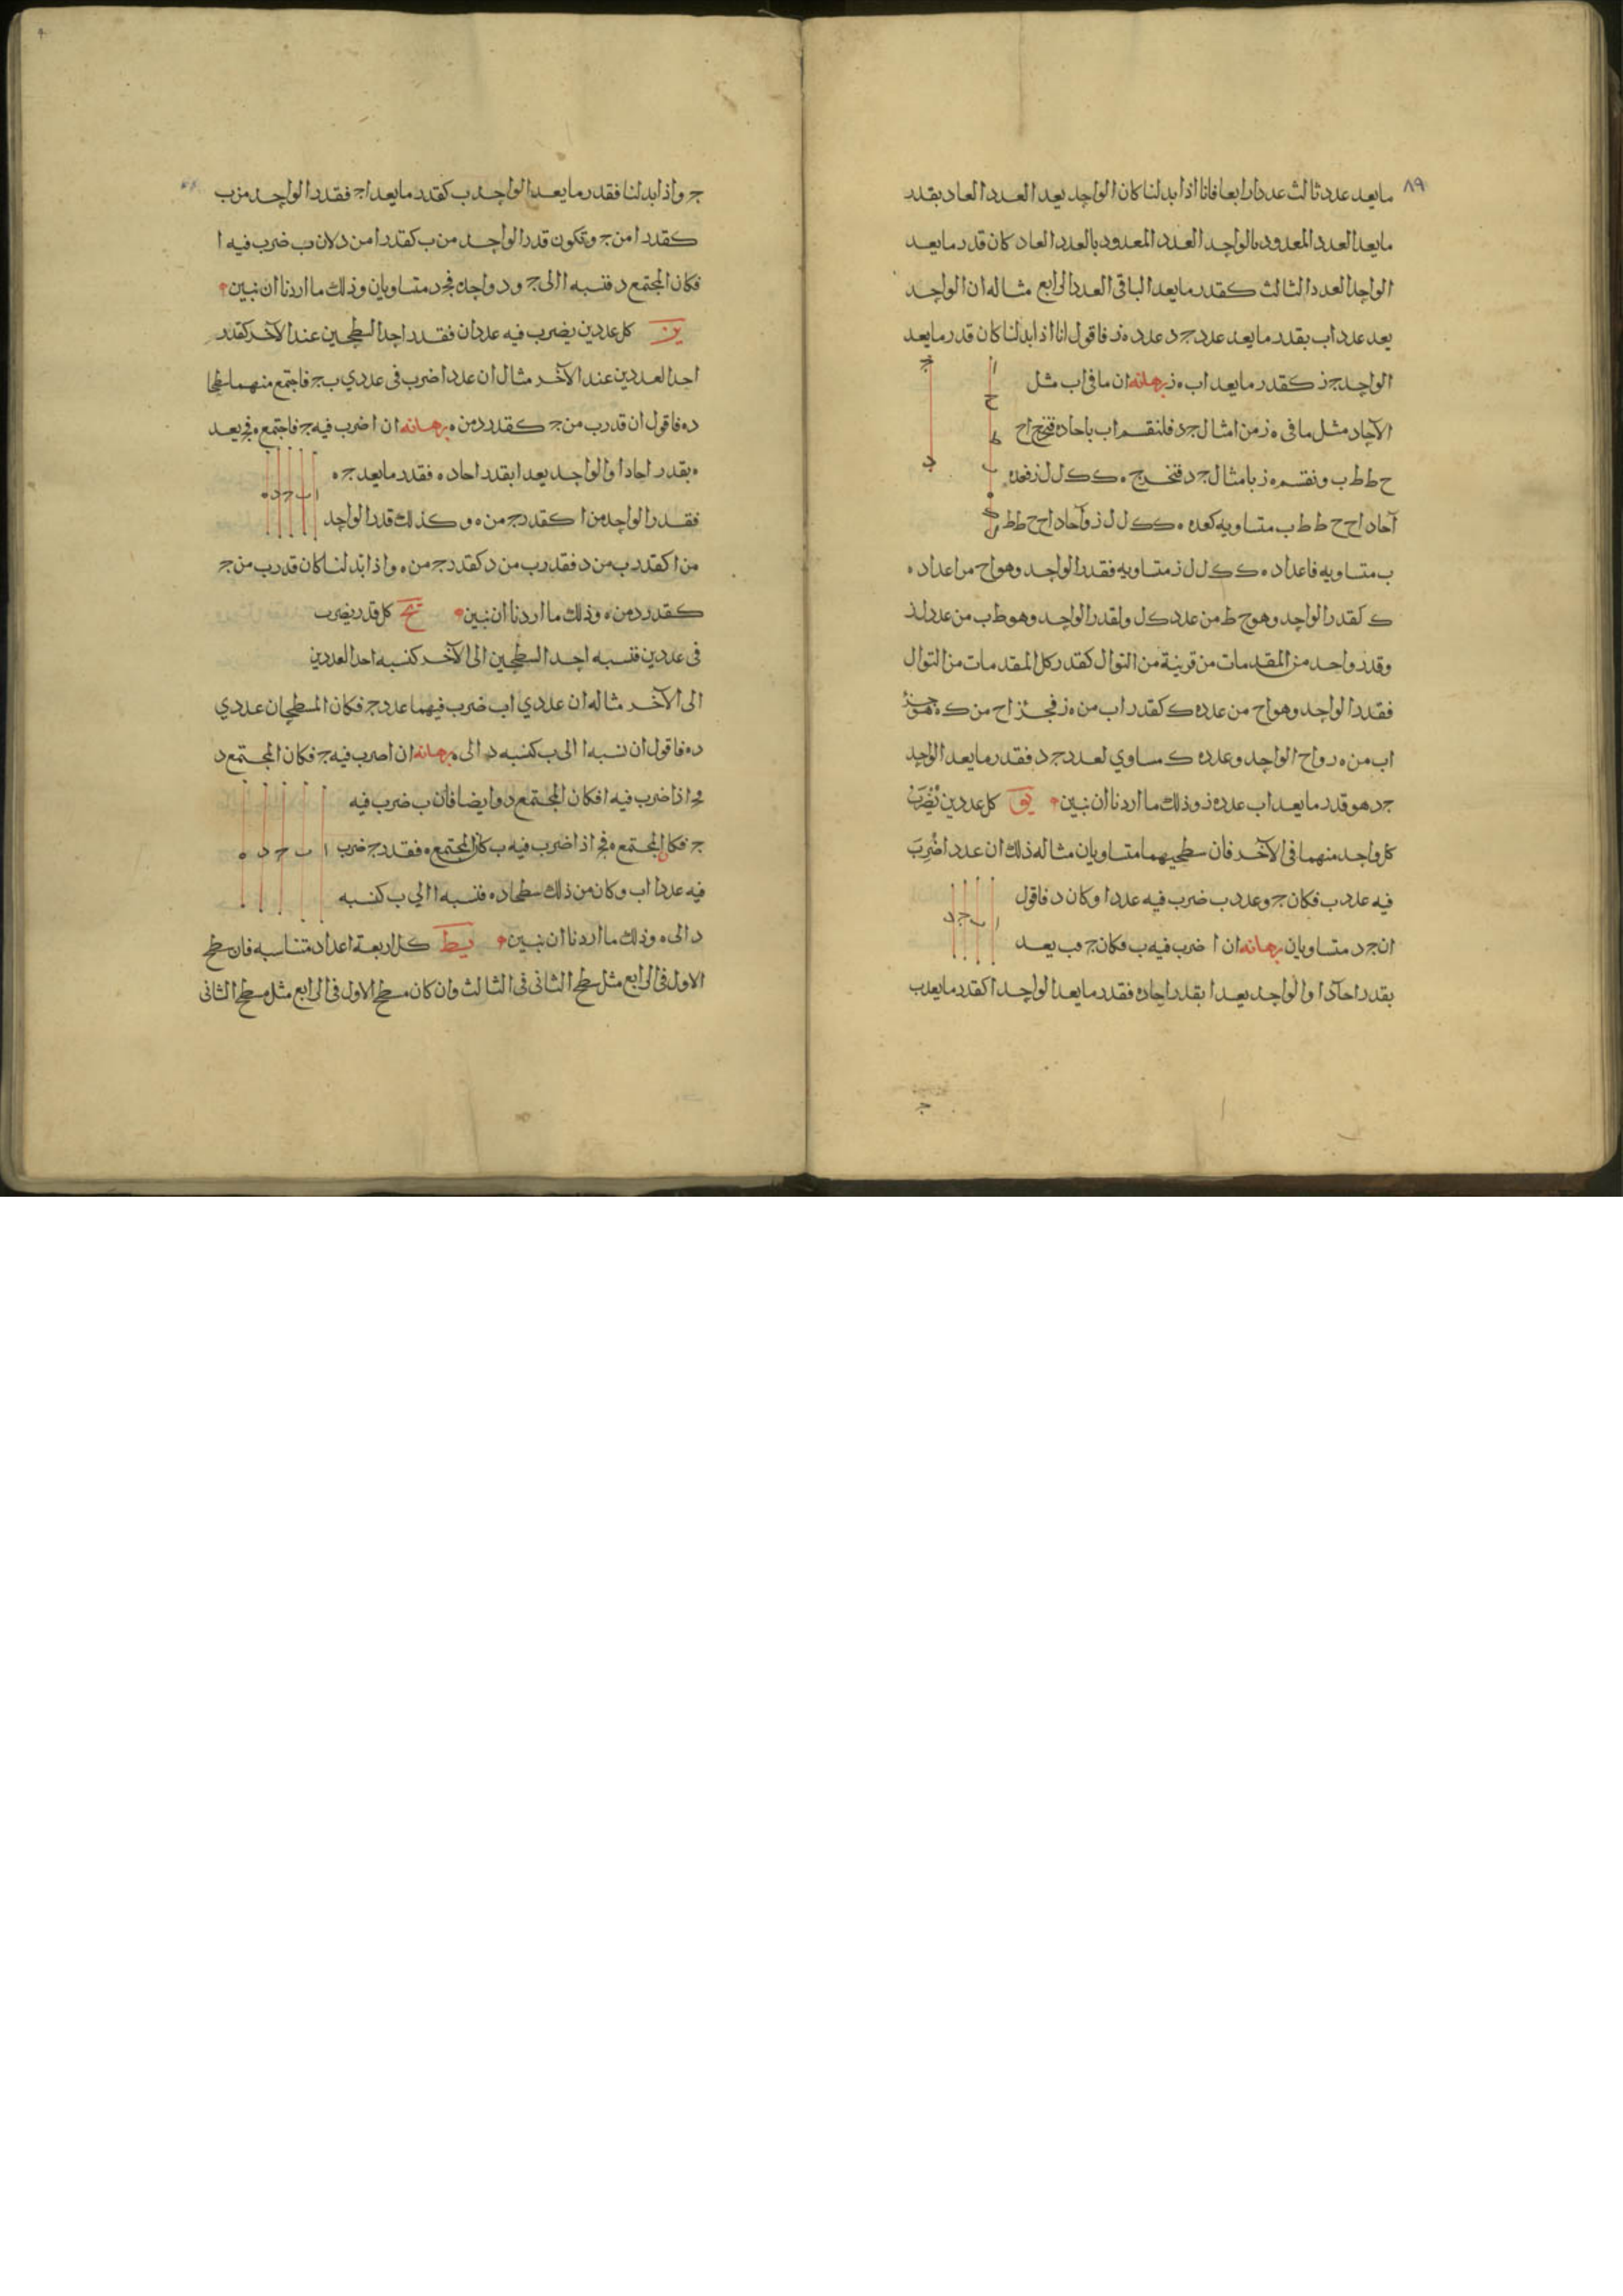 ٨٩
ما يعد عدد ثالث عددا رابعا فانا اذا بدلنا كان الواحد يعد العدد العاد بقدر
ما يعد العدد المعدود بالواحد العدد المعدود بالعدد العاد كان قدر ما يعد
الواحد العدد الثالث كقدر ما يعد الباقى العدد الرابع مثاله ان الواحد
يعد عدد اب بقدر ما يعد عدد جد عدد ه ز فاقول انا اذا بدلنا كان قدر ما يعد
الواحد جز كقدر ما يعد اب ه ز برهانه ان ما فى اب مثل
الآحاد مثل ما فى ه ز من امثال جد فلنقسم اب باحاده فتخرج اح
ح ط ط ب ونقسم ه ز بامثال جد فتخرج ه ك ك ل ل ز فعده
آحاد اح ح ط ط ب متساويه كعده ه ك ك ل ل ز وآحاد اح ح ط ط
ب متساويه فاعداد ه ك ك ل ل ز متساويه فقدر الواحد وهو اح من اعداد ه
ك كقدر الواحد وهو ح ط من عدد ك ل ولقدر الواحد وهو ط ب من عدد لز
وقدر واحد من المقدمات من قرينة من التوال كقدر كل المقدمات من التوال
فقدر الواحد وهو اح من عدد ه ك كقدر اب من ه ز فجز اح من ك ه هو جز
اب من ه ر واح الواحد وعدد ه ك مساوي لعدد جد فقدر ما يعد الواحد
جد هو قدر ما يعد اب عدد ه ز وذلك ما اردنا ان نبين يو كل عددين يُضرَبُ
كل واحد منهما فى الآخر فان سطحيهما متساويان مثاله ذلك ان عدد ا ضُرِبَ
فيه عدد ب فكان ج وعدد ب ضرب فيه عدد ا وكان د فاقول
ان ج د متساويان برهانه ان ا ضرب فيه ب فكان ج فب يعد
بقدر احآد ا والواحد يعد ا بقدر احاده فقدر ما يعد الواحد ا كقدر ما يعد ب
ج واذا بدلنا فقدر ما يعد الواحد ب كقدر ما يعد ا ج فقدر الواحد من ب
كقدر ا من ج وتكون قدر الواحد من ب كقدر ا من د لان ب ضرب فيه ا
فكان المجتمع د فنسبه ا الى ج ود واحده فج د متساويان وذلك ما اردنا ان نبين
يز كل عددين يضرب فيه عددان فقدر احد السطحين عند الآخر كقدر
احد العددين عند الآخر مثال ان عدد ا ضرب فى عددي ب ج فاجتمع منهما سطحا
د ه فاقول ان قدر ب من ج كقدر د من ه برهانه ان ا ضرب فيه ج فاجتمع ه فج يعد
ه بقدر احاد ا والواحد يعد ا بقدر احاده فقدر ما يعد ج ه
فقدر الواحد من ا كقدر ج من ه وكذلك قدر الواحد
من ا كقدر ب من د فقدر ب من د كقدر ج من ه واذا بدلنا كان قدر ب من ج
كقدر د من ه وذلك ما اردنا ان نبين يح كل قدر يضرب
فى عددين فنسبه احد السطحين الى الآخر كنسبه احد العددين
الى الآخر مثاله ان عددي اب ضرب فيهما عدد ج فكان المسطحان عددي
د ه فاقول ان نسبه ا الى ب كنسبه د الى ه برهانه ان ا ضرب فيه ج فكان المجتمع د
فج اذا ضرب فيه ا فكان المجتمع د وايضا فان ب ضرب فيه
ج فكان المجتمع ه فج اذا ضرب فيه ب كان المجتمع ه فقدر ج ضرب
فيه عددا اب وكان من ذلك سطحا د ه فنسبه ا الي ب كنسبه
د الى ه وذلك ما اردنا ان نبين يط كل اربعة اعداد متناسبه فان سطح
الاول فى الرابع مثل سطح الثانى فى الثالث وان كان مسطح الاول فى الرابع مثل مسطح الثانى